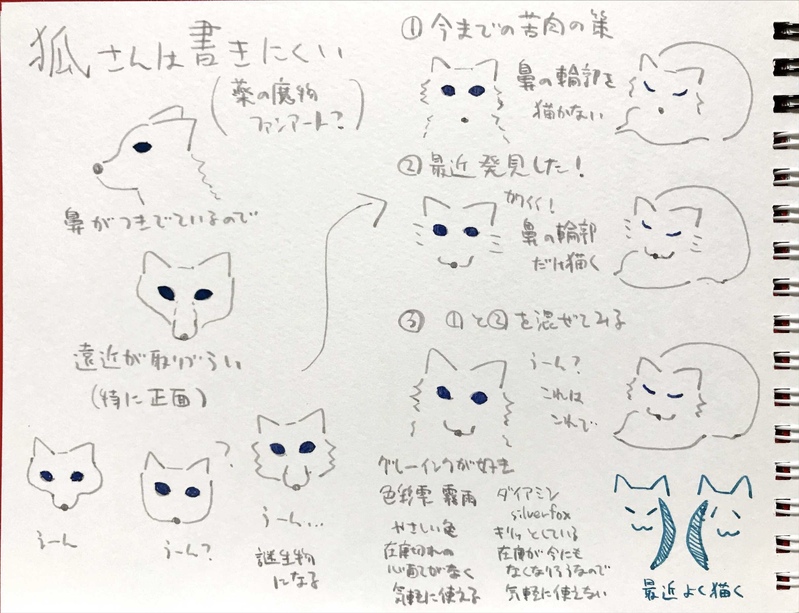 狐さんは書きにくい
(薬の魔物
ファンアート?)
鼻がつきでているので
遠近が取りづらい
(特に正面)
うーん
うーん?
?
うーん…
謎生物
になる
① 今までの苦肉の策
鼻の輪郭を
描かない
② 最近発見した!
かわいく!
鼻の輪郭
だけ描く
③ ①と②を混ぜてみる
うーん?
これは
これで
グレーインクが好き
色彩雫 霧雨
やさしい色
在庫切れの
心配がなく
気軽に使える
ダイアミン
silverfox
キリッとしている
在庫が今にも
なくなりそうなので
気軽に使えない
最近よく描く